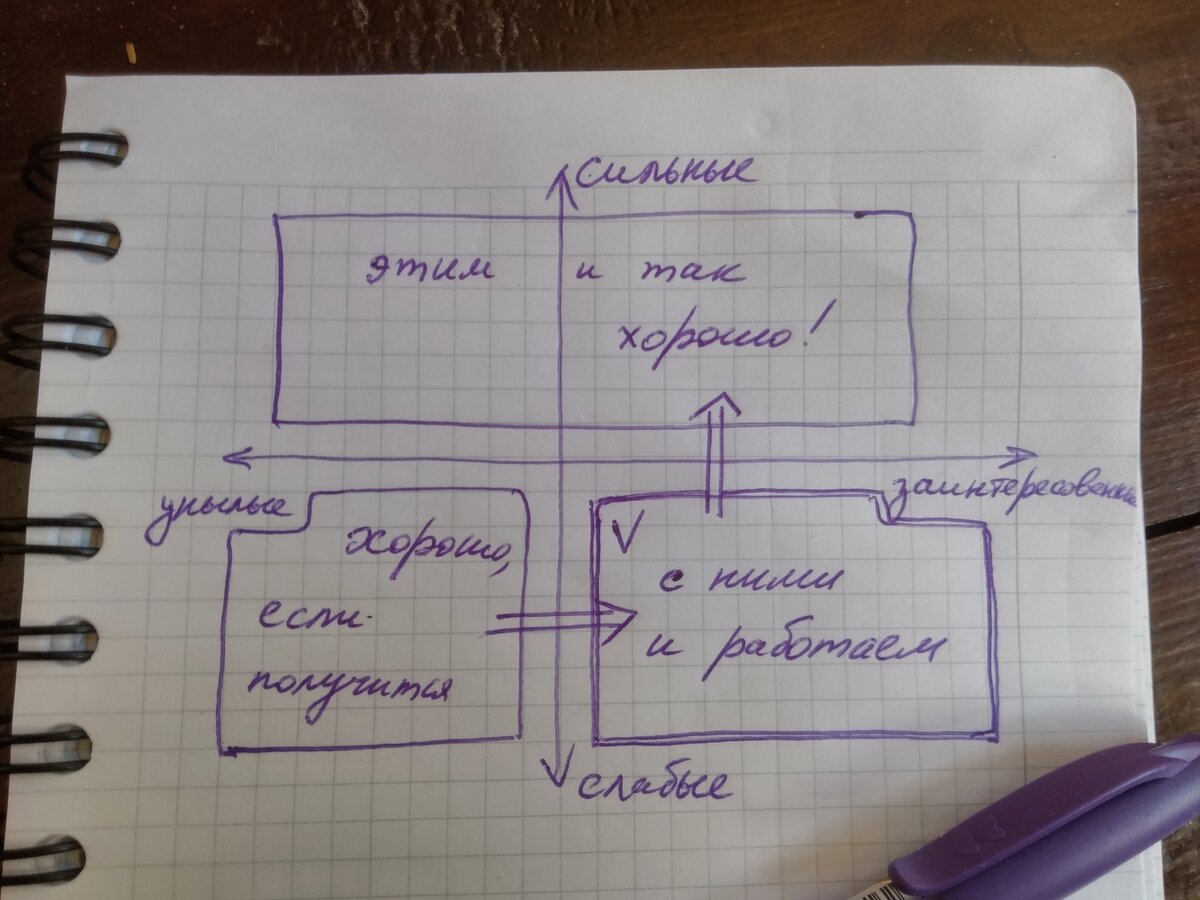 сильные
этим и так
хорошо!
унылые
заинтересованные
хорошо,
если
получится
V
с ними
и работаем
слабые